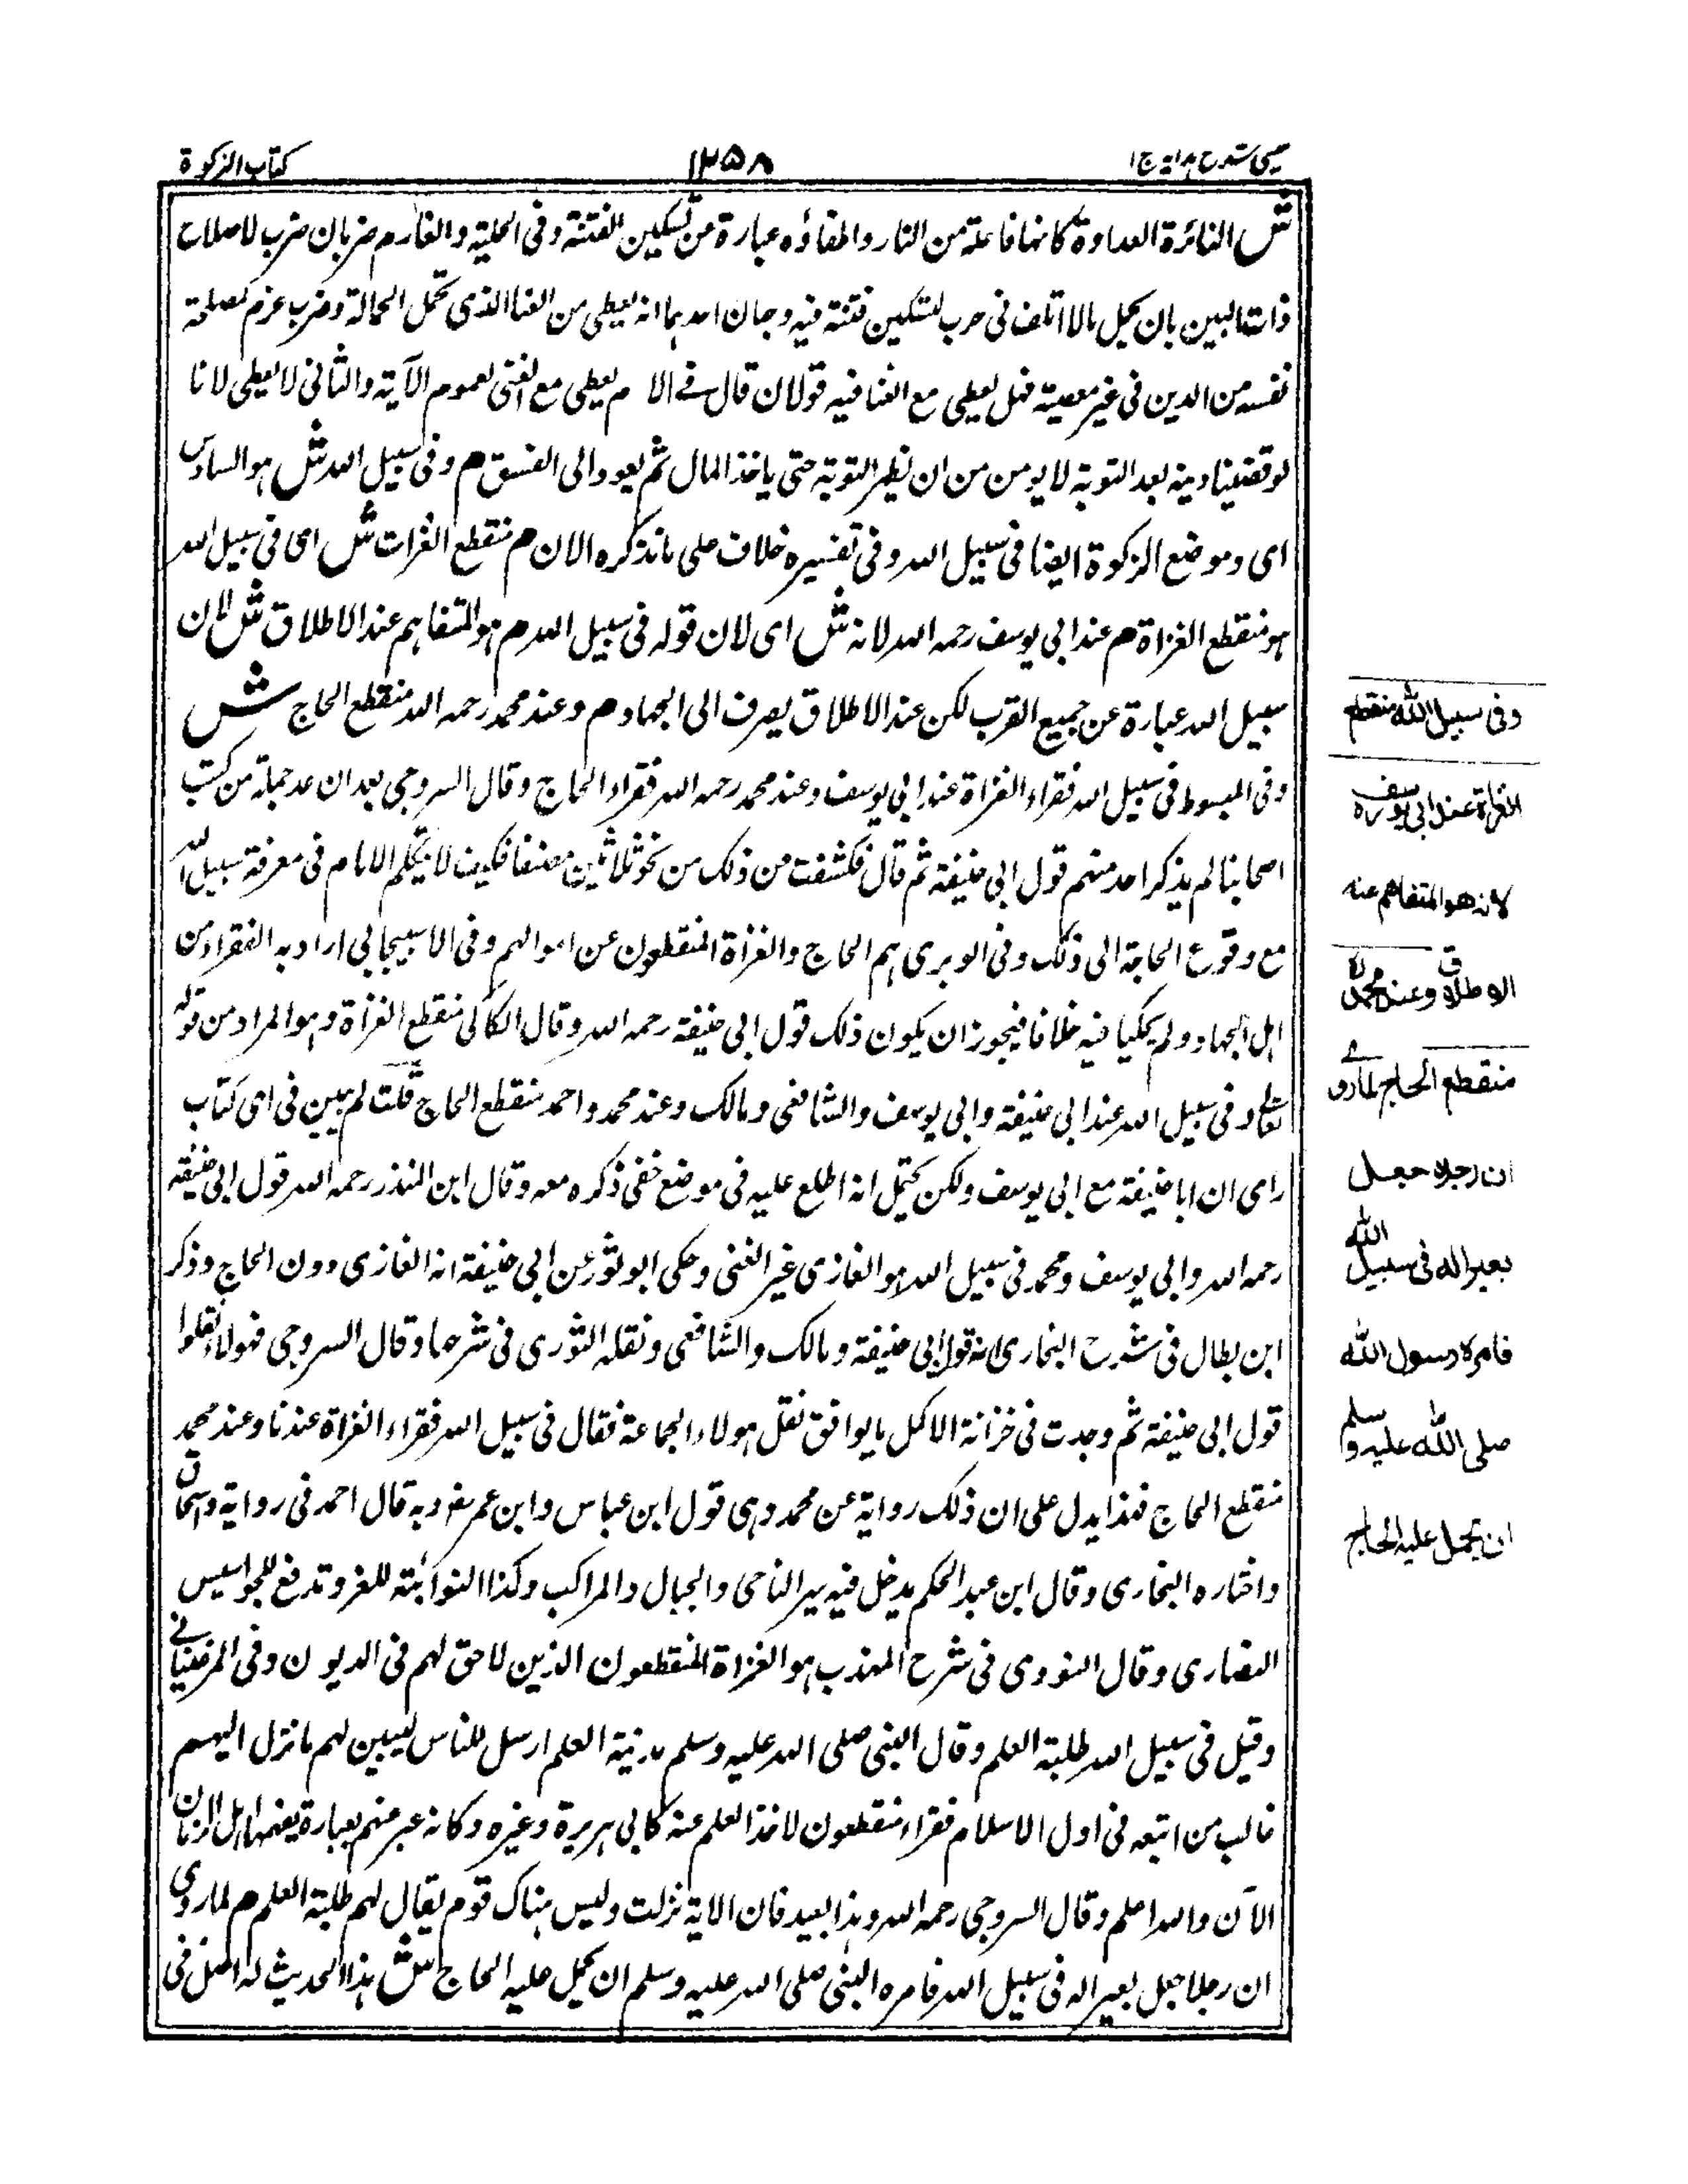 عینی شرح ہدایہ ج ا
۱۲۵۸
کتاب الزکوة
ش النائرة العداوة کانها فاعلة من النار واطفاؤه عبارة من تسکین الفتنة وفی الحلیة والغارم ضربان ضرب لاصلاح
ذات البین بان یحمل مالا اتلف فی حرب لتسکین فتنة فیه وجهان احدہما انه یعطی من الغنا الذی تحمل الحمالة وضرب غرم لمصلحة
نفسه من الدین فی غیر معصیة فهل یعطی مع الغنا فیه قولان قال فی الام یعطی مع الغنی لعموم الآیة والثانی لا یعطی لانا
لو قضینا دینه بعد التوبة لا یومن من ان یظهر التوبة حتی یاخذ المال ثم یعود الی الفسق م وفی سبیل الله ش ہو السادس
ای وموضع الزکوة ایضا فی سبیل الله وفی تفسیره خلاف علی ما نذکره الان م منقطع الغزات ش ای فی سبیل الله
ہو منقطع الغزاة م عند ابی یوسف رحمه الله لانه ش ای لان قوله فی سبیل الله م ہو المتفاہم عند الاطلاق ش لان
سبیل الله عبارة عن جمیع القرب لکن عند الاطلاق یصرف الی الجهاد م وعند محمد رحمه الله منقطع الحاج ش
وفی المبسوط فی سبیل الله فقراء الغزاة عند ابی یوسف وعند محمد رحمه الله فقراء الحاج وقال السروجی بعد ان عد جملة من کتب
اصحابنا لم یذکر احد منهم قول ابی حنیفة ثم قال فکشفت من ذلک من نحو ثلاثین مصنفا فکیف لا یتکلم الامام فی معرفة سبیل الله
مع وقوع الحاجة الی ذلک وفی الوبری ہم الحاج والغزاة المنقطعون عن اموالهم وفی الاسبیجابی اراد به الفقراء من
اہل الجهاد ولم یحکیا فیه خلافا فیجوز ان یکون ذلک قول ابی حنیفة رحمه الله وقال الکاکی منقطع الغزاة وہو المراد من قوله
تعالی وفی سبیل الله عند ابی حنیفة وابی یوسف والشافعی ومالک وعند محمد واحمد منقطع الحاج قلت لم یبین فی ای کتاب
رای ان ابا حنیفة مع ابی یوسف ولکن یحتمل انه اطلع علیه فی موضع خفی ذکره معه وقال ابن المنذر رحمه الله قول ابی حنیفة
رحمه الله وابی یوسف ومحمد فی سبیل الله ہو الغازی غیر الغنی وحکی ابو ثور عن ابی حنیفة انه الغازی دون الحاج وذکر
ابن بطال فی شرح البخاری انه قول ابی حنیفة ومالک والشافعی ونقله النووی فی شرحها وقال السروجی فهولاء نقلوا
قول ابی حنیفة ثم وجدت فی خزانة الاکمل ما یوافق نقل ہولاء الجماعة فقال فی سبیل الله فقراء الغزاة عندنا وعند محمد
منقطع الحاج فهذا یدل علی ان ذلک روایة عن محمد وہی قول ابن عباس وابن عمر رضہ وبه قال احمد فی روایة واسحاق
واختاره البخاری وقال ابن عبد الحکم یدخل فیه والجبال والمراکب وکذا النوابتة للغزو تدفع للجواسیس
النصاری وقال النووی فی شرح المهذب ہو الغزاة المنقطعون الذین لا حق لهم فی الدیون وفی المرغینانی
وقیل فی سبیل الله طلبة العلم وقال النبی صلی الله علیه وسلم مدینة العلم ارسل للناس لیبین لهم ما نزل الیهم
غالب من اتبعه فی اول الاسلام فقراء منقطعون لاخذ العلم عنه کابی ہریرة وغیره وکانه عبر منهم بعبارة یفهمها اہل الزمان
الآن والله اعلم وقال السروجی رحمه الله وہذا بعید فان الایة نزلت ولیس ہناک قوم یقال لهم طلبة العلم م لما روی
ان رجلا جعل بعیرا له فی سبیل الله فامره النبی صلی الله علیه وسلم ان یحمل علیه الحاج ش ہذا الحدیث له اصل فی
وفی سبیل الله منقطع
الغزاة عند ابی یوسف رہ
لانه هو المتفاهم عند
الاطلاق وعند محمد رہ
منقطع الحاج لما روی
ان رجلا جعل
بعیرا له فی سبیل الله
فامره رسول الله
صلی الله علیه وسلم
ان یحمل علیه الحاج